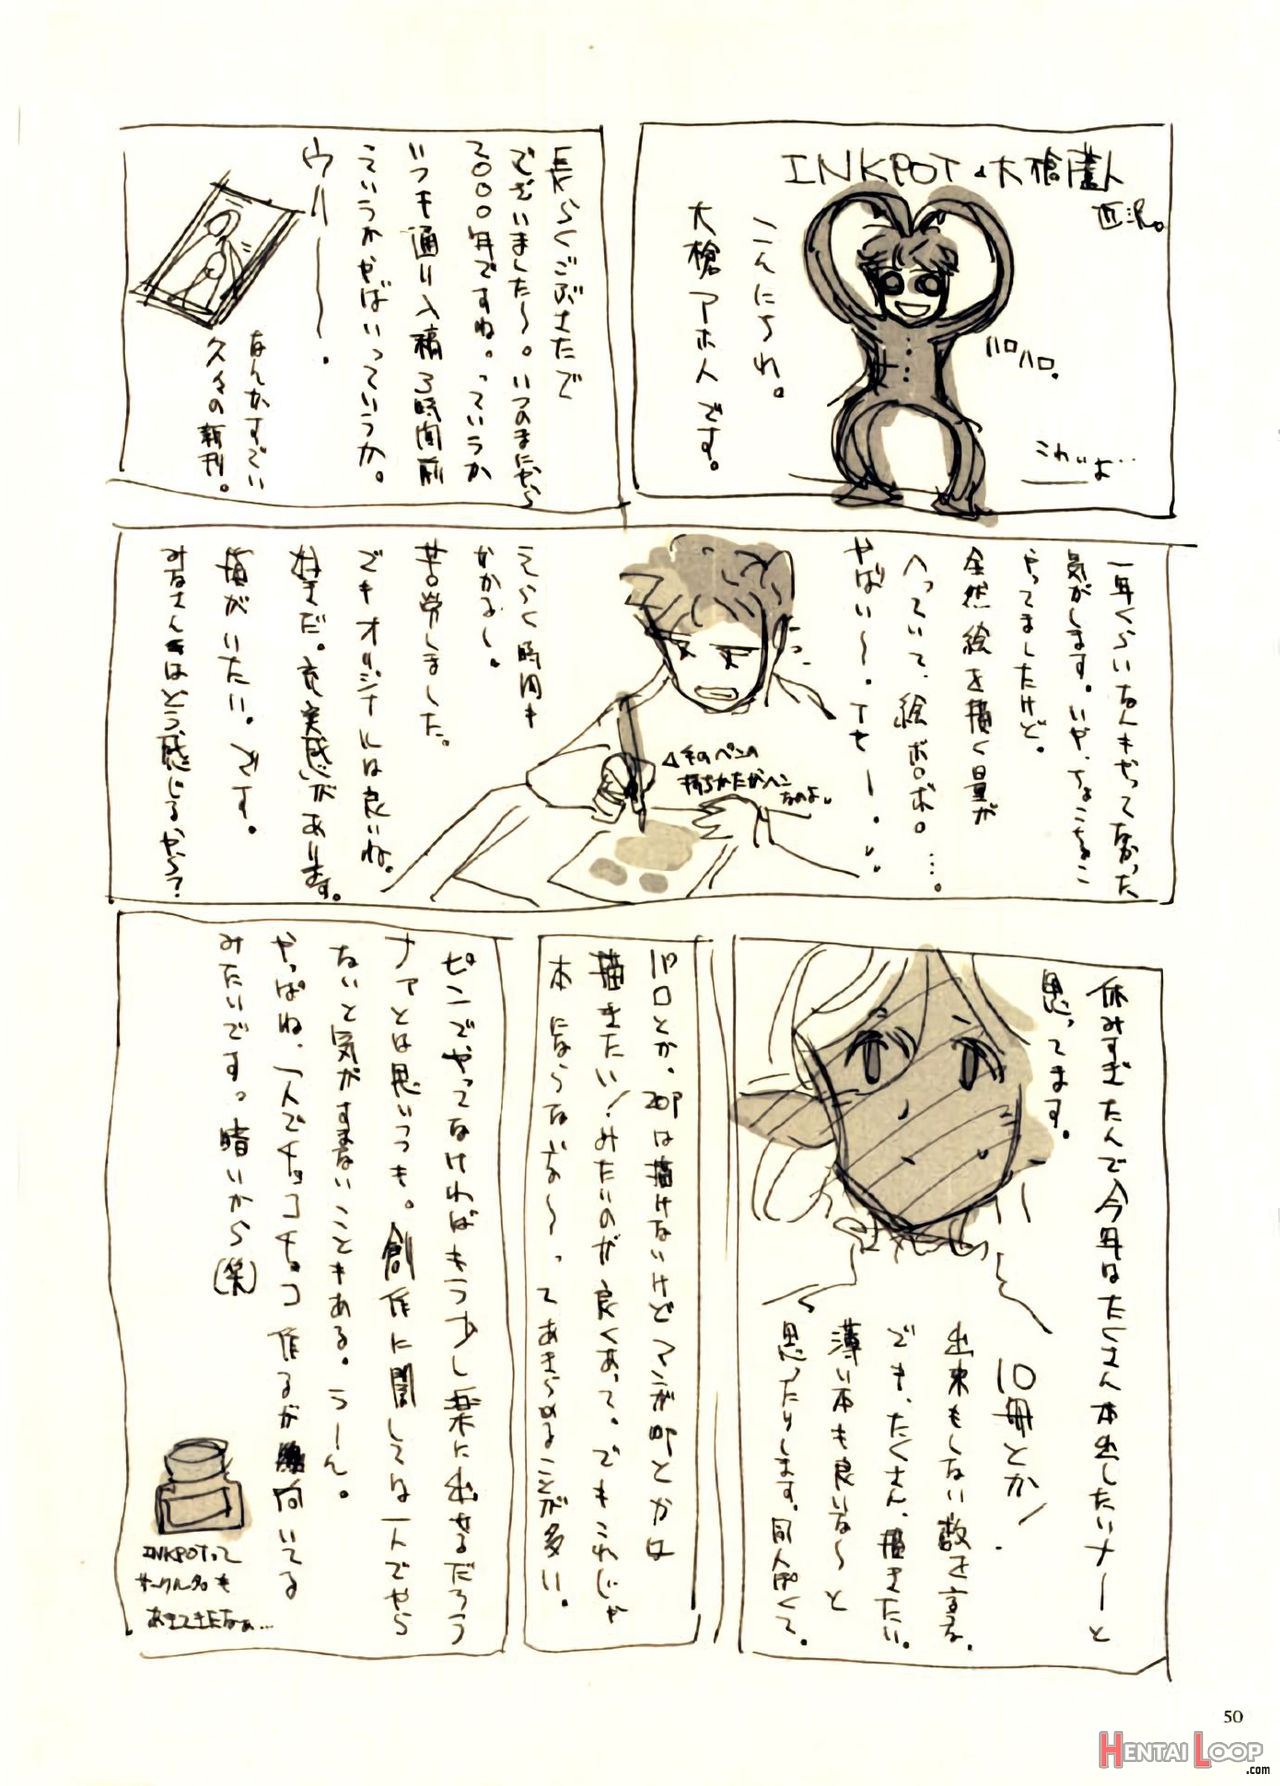 INKPOT & 大槍葦人
近況。
こんにちわ。
大槍アホ人です。
ハロハロ。
これぃよ…
長らくごぶさたで
ございました〜。いつのまにやら
2000年ですね。っていうか
いつも通り入稿3時間前
っていうかやばいっていうか。
ウハーー。
なんかすでぃ
久々の新刊。
一年くらいなんもやってなかった
気がします。いや、ちょこちょこ
やってましたけど。
全然絵を描く量が
へっていて、絵ボロボロ。…。
やばい〜。てゆー。
手のペンの
持ちかたがヘン
なのよ。
えらく時間も
かかるし。
苦労しました。
でもオリジナルは良いね。
好きだ。充実感があります。
描がいたい。です。
みなさんはどう感じるかな？
休みすぎたんで今年はたくさん本出したいナーと
思ってます。
10冊とか！
出来もしない数を言うな。
でも、たくさん、描きたい。
薄い本も良いな〜と
思ったりします。同人ぽくて。
パロとか。20Pは描けないけどマンガ8Pとかは
描きたい！みたいのが良くあって。でもこれじゃ
本にならないな〜ってあきらめることが多い。
ピンでやってなければもう少し楽に出せるだろう
ナァとは思いつつも。創作に関しては一人でやら
ないと気がすまないこともある。うーん。
やっぱね、一人でチョコチョコ作るが向いてる
みたいです。暗いから(笑)
INKPOTって
サークル名も
あきてきたなぁ…
50
HENTAI LOOP
.com